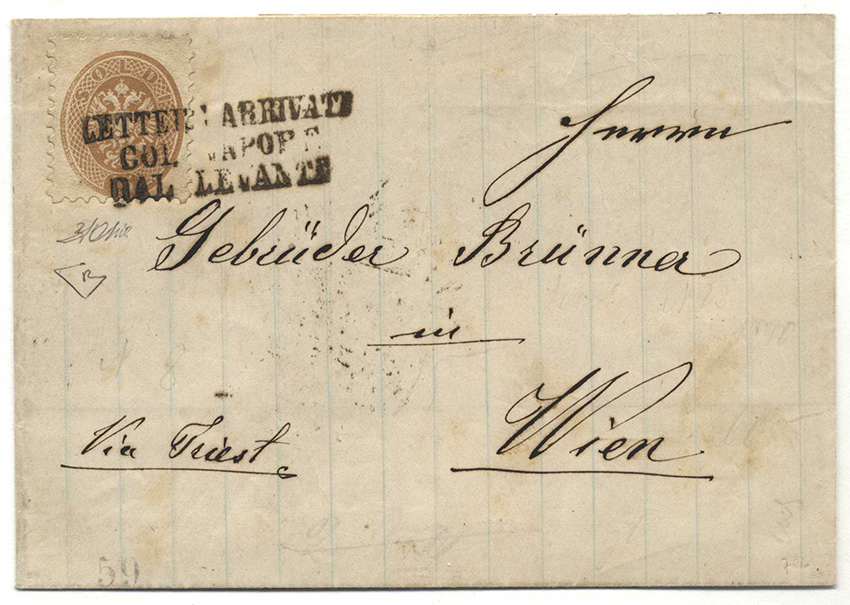 SOLDI
LETTERE ARRIVATE
COL VAPORE
DAL LEVANTE
Herrn
Gebrüder Brünner
in
Wien
Via Triest
59